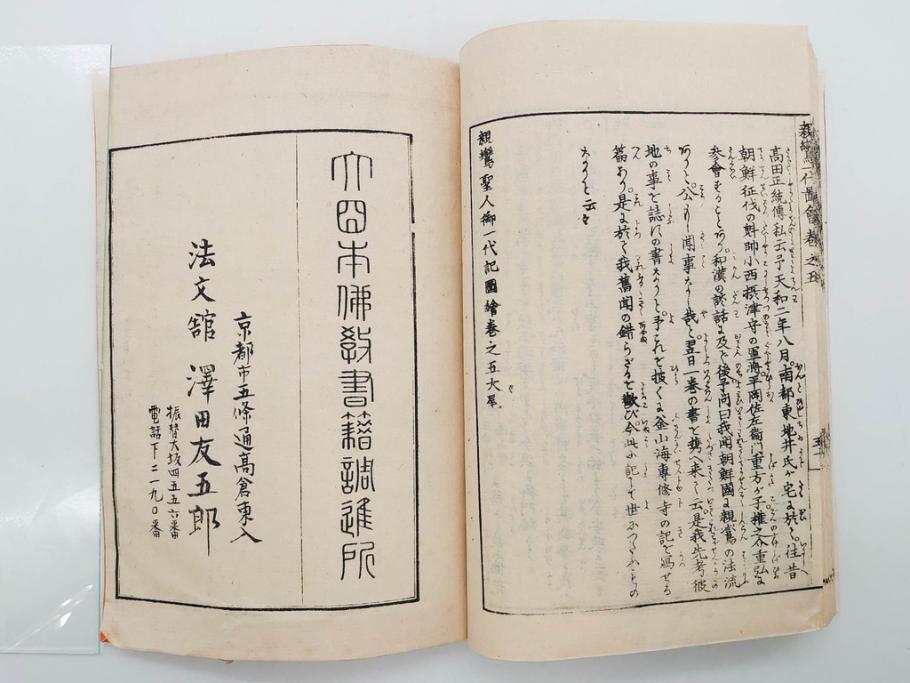 高田正統傳私云予天和二年八月。南都東地井氏が宅に於る。往昔
朝鮮征伐の魁帥小西摂津守の軍將平岡佐左衞門重方が子權之介重弘に
参會することあり。和漢の談話に及と後予問曰我聞朝鮮國に親鸞の法流
ありと。公も聞事なしや哉と翌日一巻の書を携へ来て云是我先考彼
地の事を誌すの書なりと予これを披くに釜山海專修寺の記を寫せる
篇あり是に於て我舊聞の錯らざるを歓び今此に記して世につたふるもの
なりと云々
親鸞聖人御一代記圖繪巻之五大尾
大日本佛教書籍調進所
京都市五條通高倉東入
法文舘 澤田友五郎
振替大坂四五五六番
電話下二一九〇番